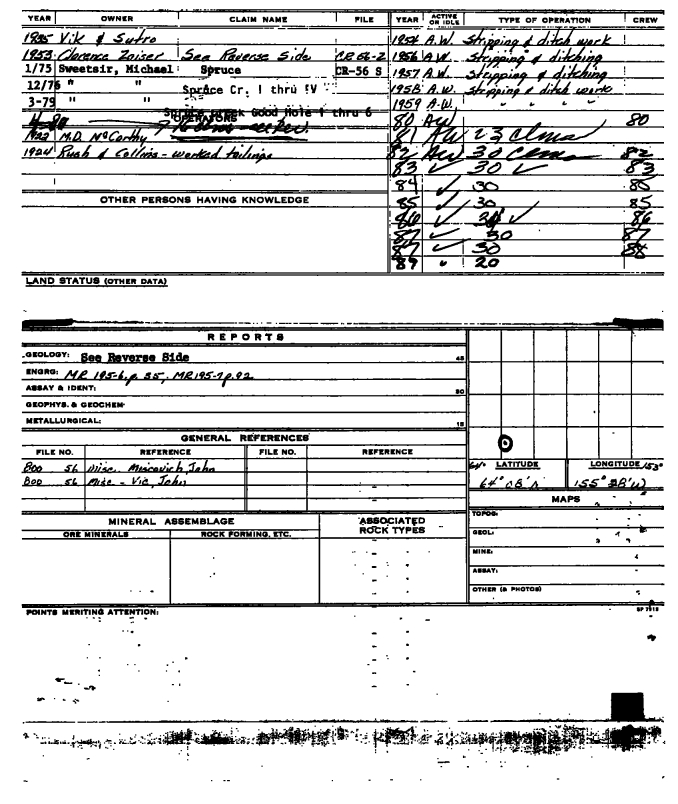 YEAR OWNER CLAIM NAME FILE YEAR ACTIVE OR IDLE TYPE OF OPERATION CREW
1935 Vik & Sutro 1954 A.W. Stripping & ditch work
1953 Clarence Zaiser See Reverse Side CR 56-2 1956 A.W. Stripping & ditching
1/75 Sweetsir, Michael Spruce CR-56 S 1957 A.W. Stripping & ditching
12/76 " " Spruce Cr. 1 thru IV 1958 A.W. Stripping & ditch work
3-79 " " Spruce Creek Good Hole 1 thru 6 1959 A.W. " " "
OPERATORS 80 AW 80
1922 M.D. McCarthy 81 AW 23 clms
1924 Rush & Collins - worked tailings 82 AW 30 clms 82
83 ✓ 30 ✓ 83
84 ✓ 30 85
OTHER PERSONS HAVING KNOWLEDGE 85 ✓ 30 85
86 ✓ ✓ 86
87 ✓ 30 87
87 ✓ 30 88
89 " 20
LAND STATUS (OTHER DATA)
REPORTS
GEOLOGY: See Reverse Side 45
ENGRG: MR 195-6, p. 35; MR 195-7 p. 92
ASSAY & IDENT: 30
GEOPHYS. & GEOCHEM
METALLURGICAL: 15
GENERAL REFERENCES
FILE NO. REFERENCE FILE NO. REFERENCE 64° LATITUDE LONGITUDE 153°
Boo 56 Misc. Miscovich, John 64° 08' N 155° 28' W
Boo 56 Misc - Vic, John
MAPS
MINERAL ASSEMBLAGE ASSOCIATED ROCK TYPES TOPOG:
ORE MINERALS ROCK FORMING, ETC. GEOL:
MINE:
ASSAY:
OTHER (& PHOTOS)
POINTS MERITING ATTENTION: